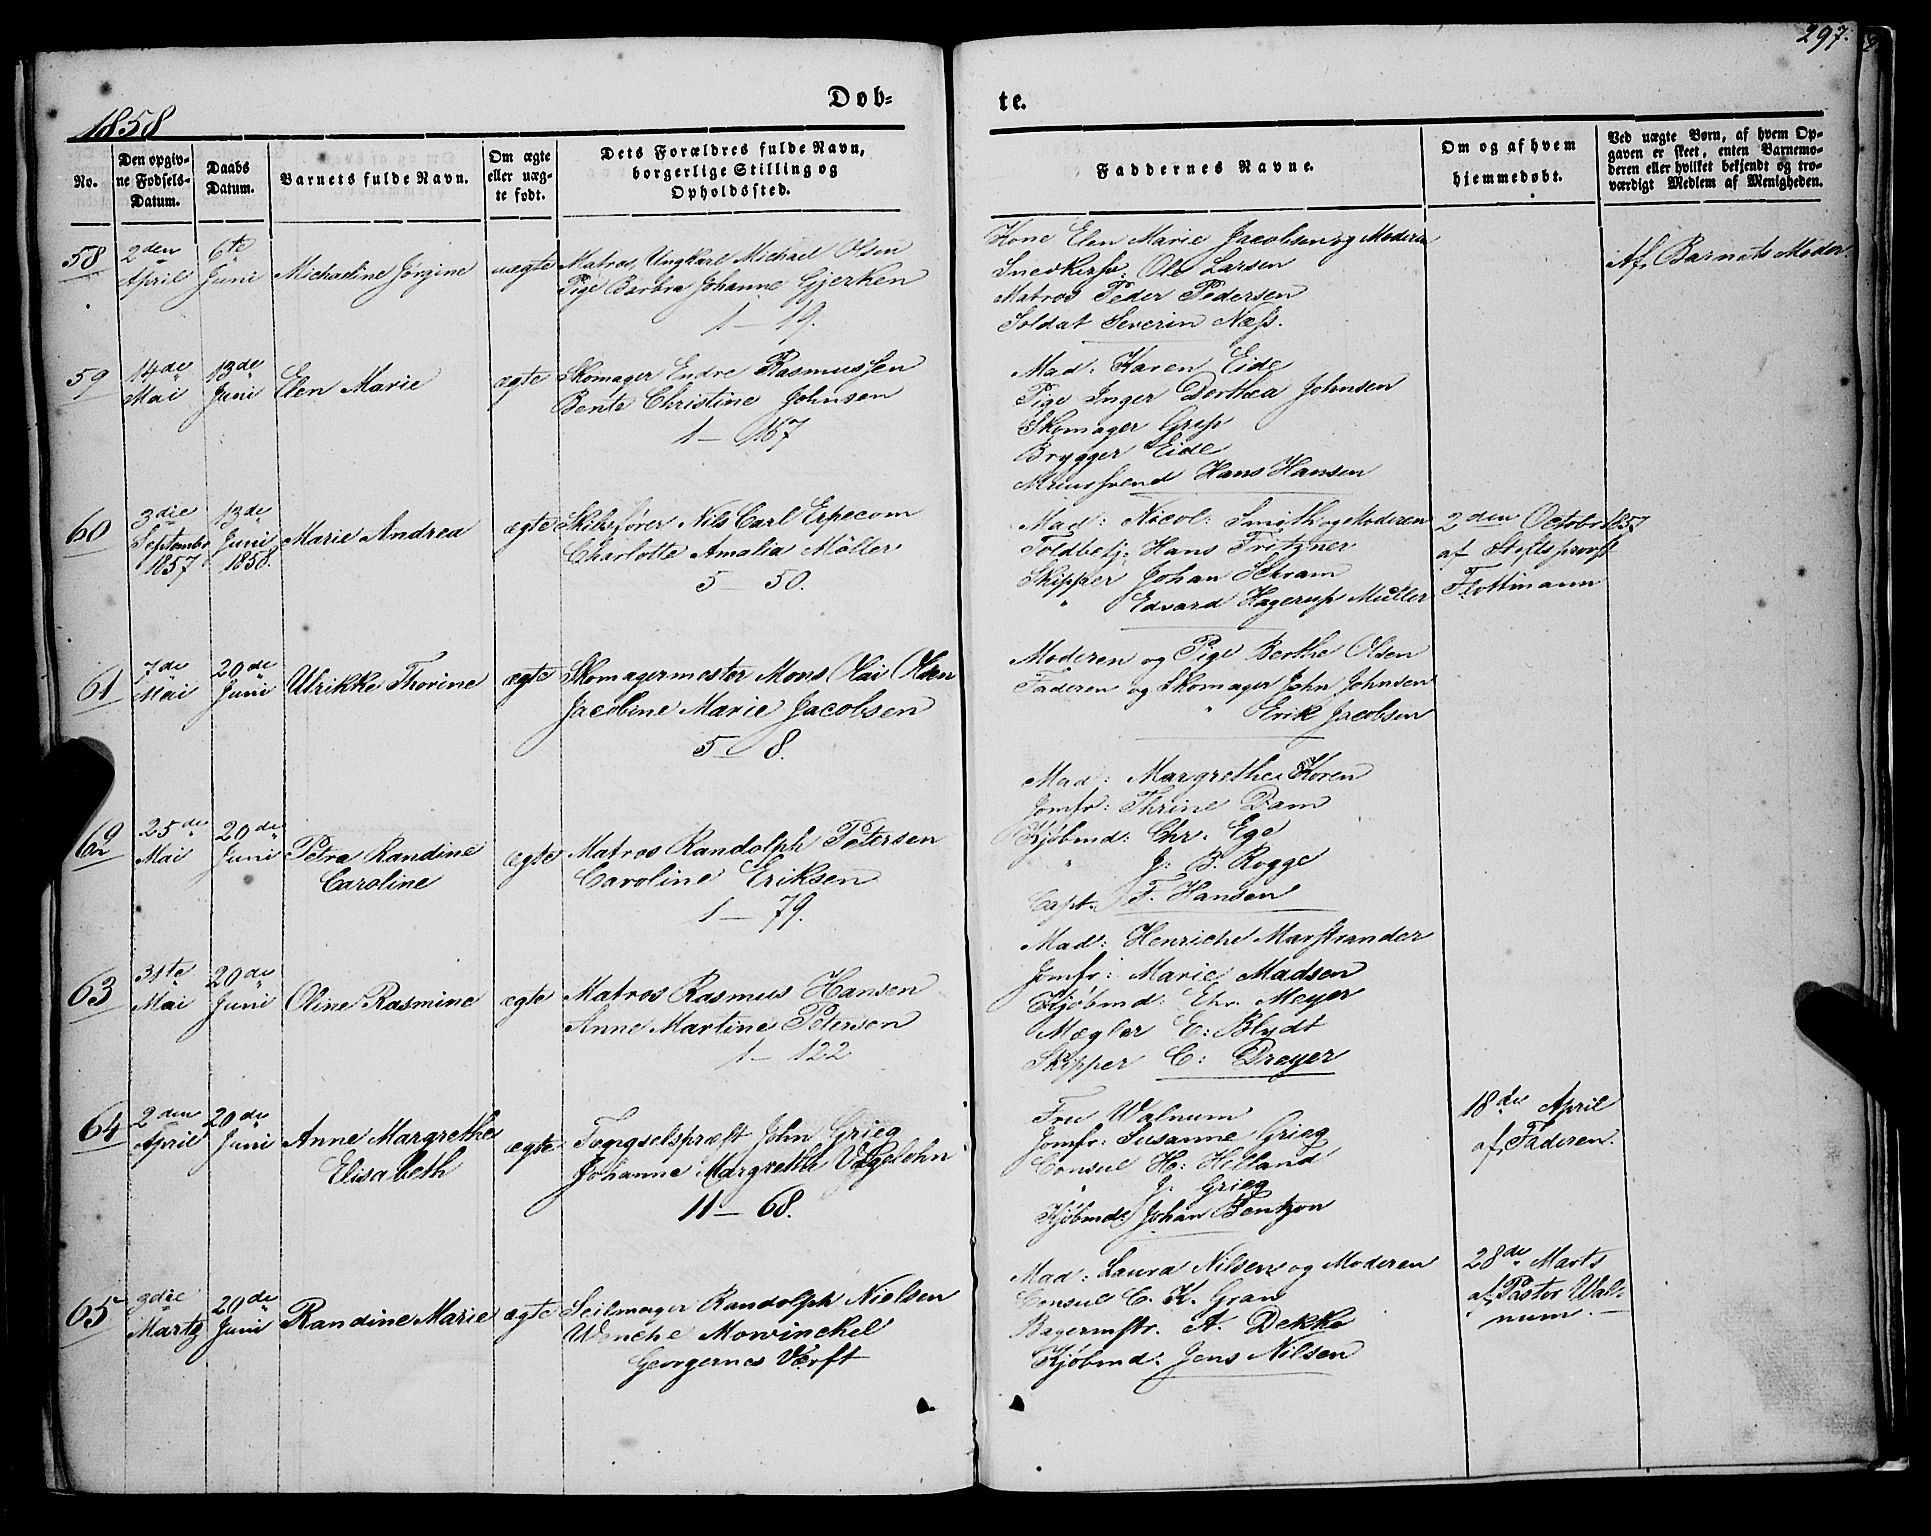 297.
1858
Døb-
te.
No.
Den opgiv-
ne Fødsels-
Datum.
Daabs
Datum.
Barnets fulde Navn.
Om ægte
eller uæg-
te født.
Dets Forældres fulde Navn,
borgerlige Stilling og
Opholdssted.
Faddernes Navne.
Om og af hvem
hjemmedøbt.
Ved uægte Børn, af hvem Op-
gaven er skeet, enten Barnemo-
deren eller hvilket bekjendt og tro-
værdigt Medlem af Menigheden.
58
2den
April
6te
Juni
Michaeline Jørgine
uægte
Matros, Ungkarl Michael Olsen
Pige Barbra Johanne Gjerken
1 — 19.
Kone Elen Marie Jacobsen og Moderen
Snedkersv: Ole Larsen
Matros Peder Pedersen
Soldat Severin Næss.
Af Barnets Moder.
59
14de
Mai
13de
Juni
Elen Marie
ægte
Skomager Endre Rasmussen
Bente Christine Johnsen
1 — 167
Mad. Karen Eide
Pige Inger Dorthea Johnsen
Skomager Grip
Brygger Eide
Muursvend Hans Hansen
60
3die
Septembr
1857
13de
Juni
1858.
Marie Andrea
ægte
Skibsfører Nils Carl Erpecom
Charlotte Amalia Möller
5 — 50.
Mad: Nicol: Smith og Moderen
Toldbetj: Hans Fritzner
Skipper Johan Schram
" Edvard Hagerup Müller
2den Octobr 1857
af Stiftsprovst
Flottmann
61
7de
Mai
20de
Juni
Ulrikke Thorine
ægte
Skomagermester Mons Olai Olsen
Jacobine Marie Jacobsen
5 — 8.
Moderen og Pige Berthe Olsen
Faderen og Skomager John Johnsen
" Erik Jacobsen
62
25de
Mai
20de
Juni
Petra Randine
Caroline
ægte
Matros Randolph Petersen
Caroline Eriksen
1 — 79.
Mad: Margrethe Koren
Jomfr: Thrine Dam
Kjøbmd: Chr: Ege
" J: B. Rogge
Capt. F. Hansen
63
31te
Mai
20de
Juni
Oline Rasmine
ægte
Matros Rasmus Hansen
Anne Martine Petersen
1 — 122
Mad: Henriche Marstrander
Jomfr: Marie Madsen
Kjøbmd: Chr. Meyer
Mægler C: Blydt
Skipper C: Dreyer
64
2den
April
20de
Juni
Anne Margrethe
Elisabeth
ægte
Fængselspræst John Grieg
Johanne Margrethe Vogelsohn
11 — 68.
Fru Walnum
Jomfr: Susanne Grieg
Consul H: Helland
" J. Grieg
Kjøbmd: Johan Bentzon
18de April
af Faderen.
65
3die
Martz
20de
Juni
Randine Marie
ægte
Seilmager Randolph Nielsen
Wenche Mowinckel
Georgernes Værft
Mad: Laura Nilsen og Moderen
Consul C. K. Gran
Bagermstr. A. Dekke
Kjøbmd: Jens Nilsen
28de Marts
af Pastor Wal-
num.